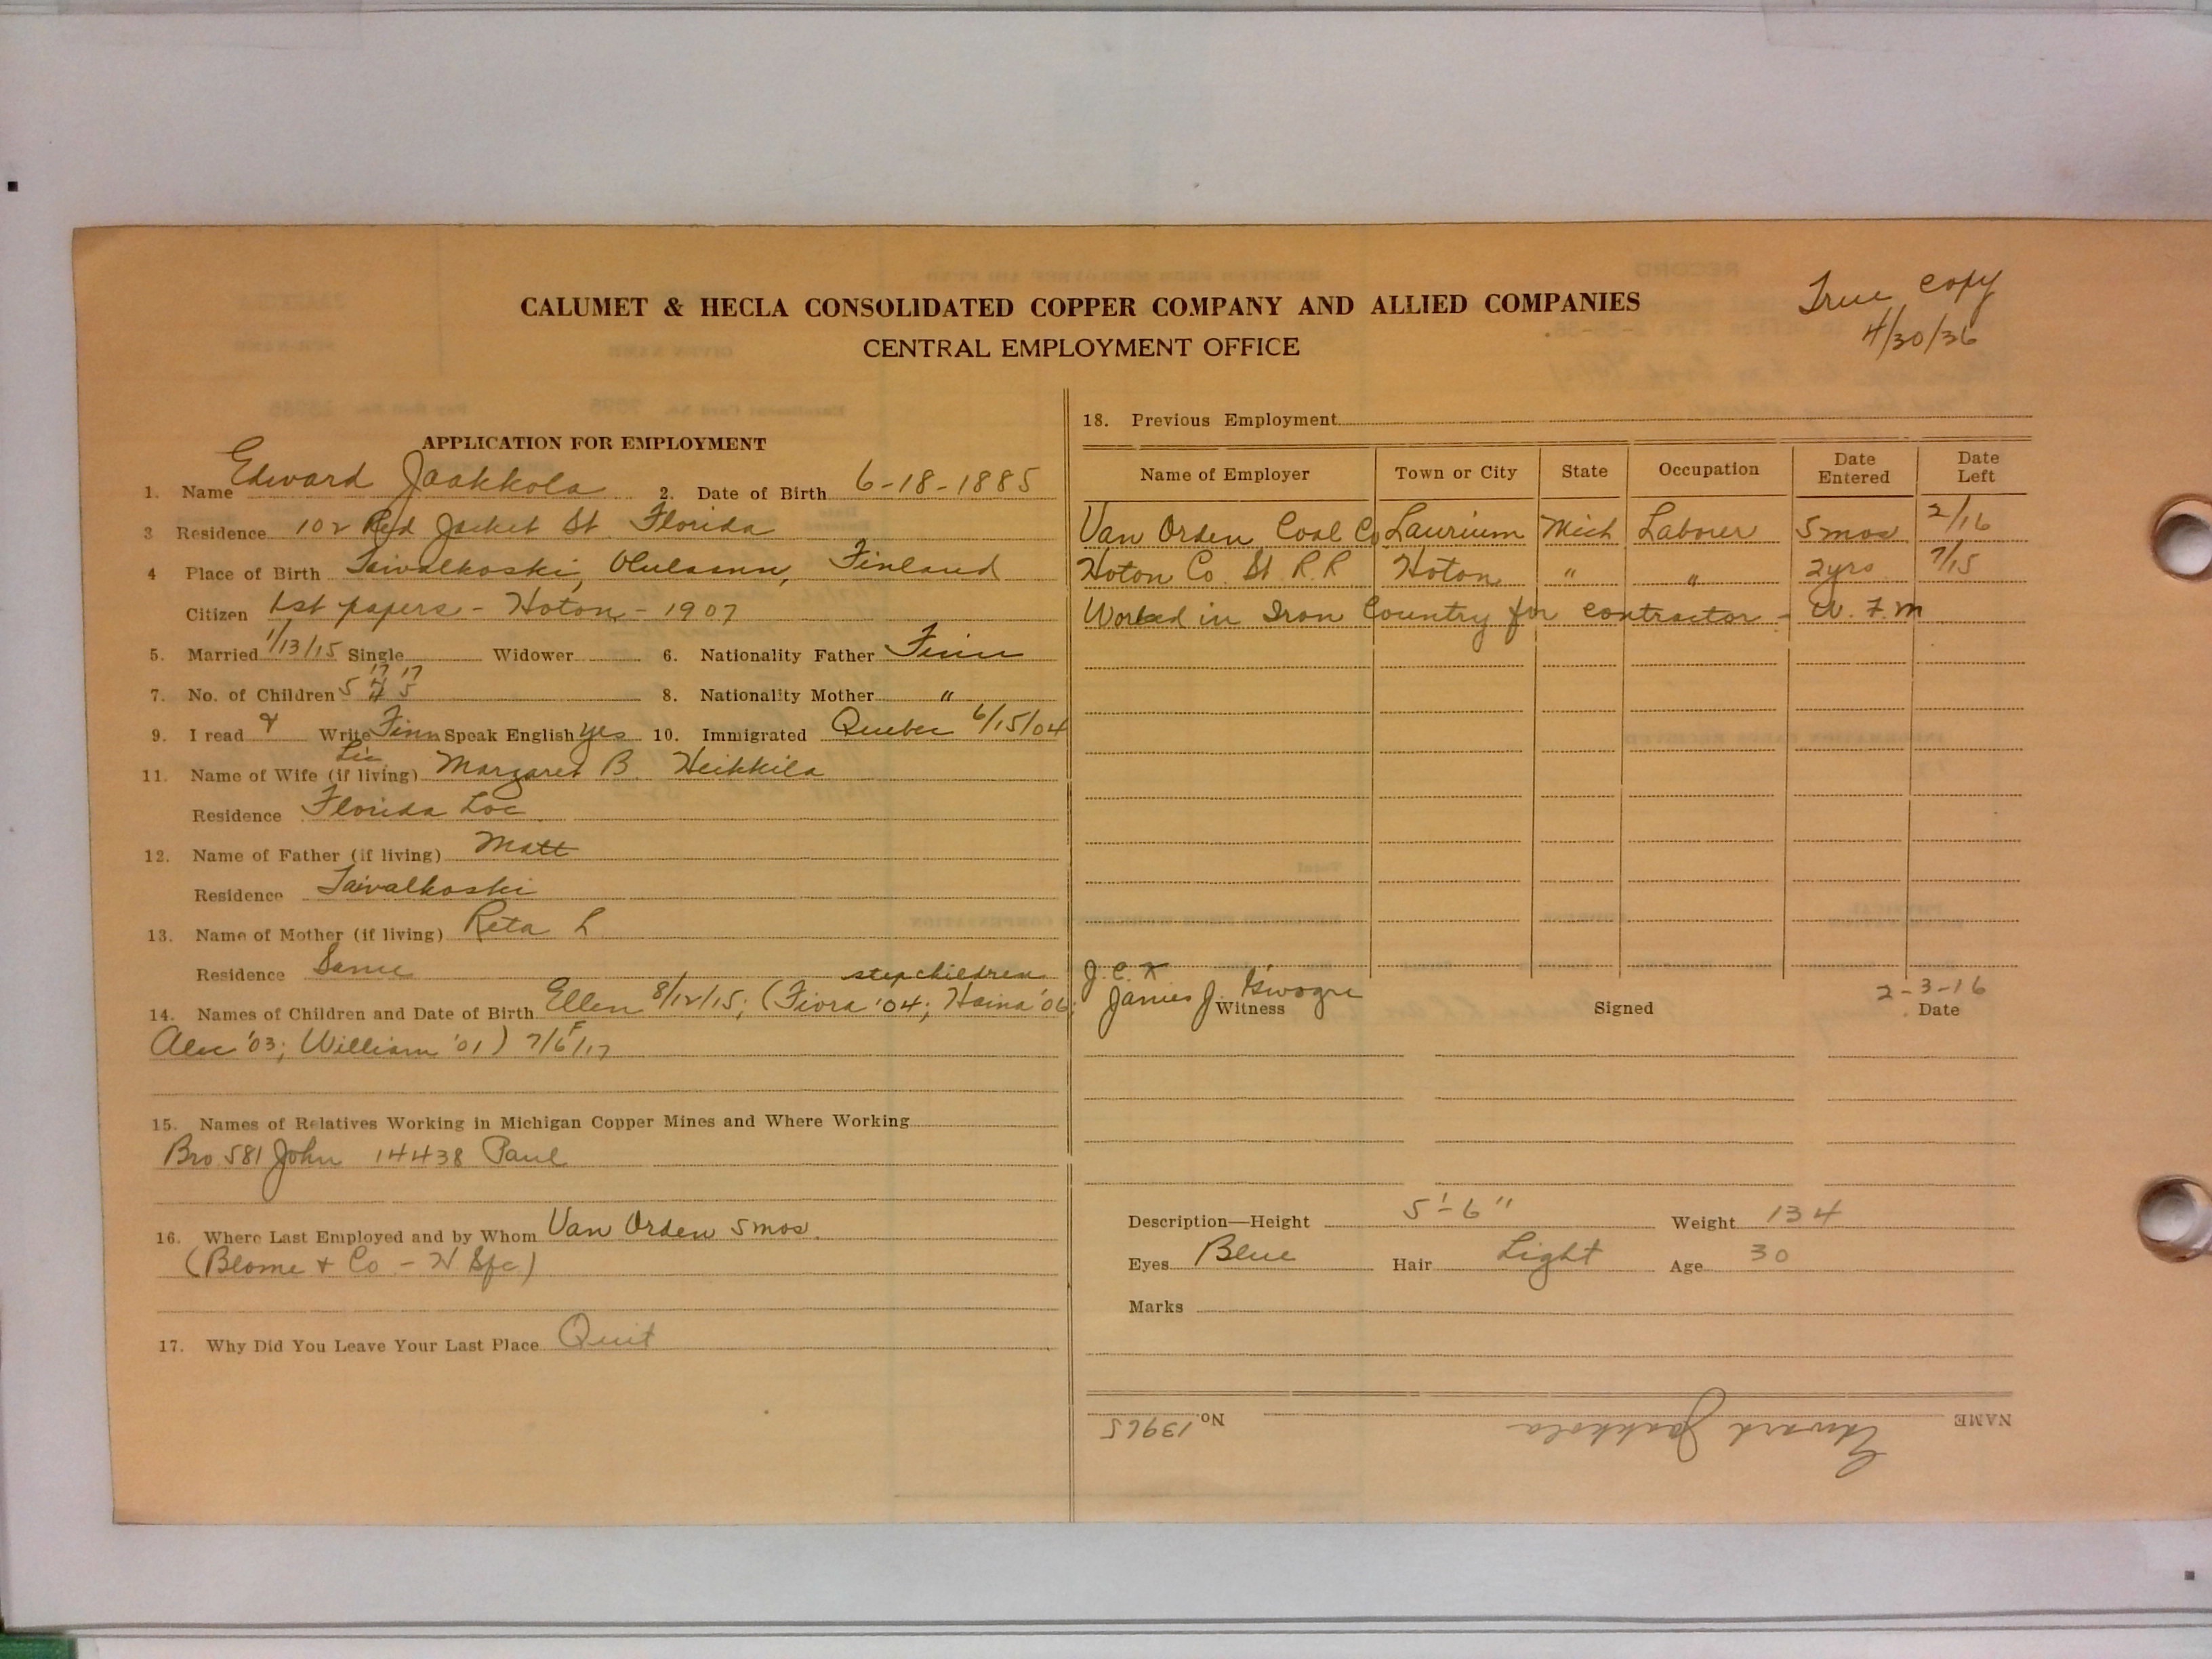 True copy
4/30/36
CALUMET & HECLA CONSOLIDATED COPPER COMPANY AND ALLIED COMPANIES
CENTRAL EMPLOYMENT OFFICE
APPLICATION FOR EMPLOYMENT
1. Name Edward Jaakkola 2. Date of Birth 6-18-1885
3 Residence 102 Red Jacket St Florida
4 Place of Birth Taivalkoski, Finland
Citizen 1st papers - Hoton - 1907
5. Married 1/13/15 Single Widower 6. Nationality Father Finn
17 17
7. No. of Children 5 4 5 8. Nationality Mother "
9. I read & Write Finn Speak English yes 10. Immigrated Quebec 6/15/04
11. Name of Wife (if living) Margaret B. Heikkila
Residence Florida Loc
12. Name of Father (if living) Matt
Residence Taivalkoski
13. Name of Mother (if living) Reta L
Residence Same
stepchildren
14. Names of Children and Date of Birth Ellen 8/12/15; (Fiora '04; Haina '06;
Alec '03; William '01) 7/6/17
15. Names of Relatives Working in Michigan Copper Mines and Where Working
Bro 581 John 14438 Paul
16. Where Last Employed and by Whom Van Orden 5 mos.
(Blome & Co - )
17. Why Did You Leave Your Last Place Quit
18. Previous Employment
Name of Employer Town or City State Occupation Date Entered Date Left
Van Orden Coal Co Laurium Mich Laborer 5 mos 2/16
Hoton Co. St R.R Hoton " " 2 yrs 7/15
Worked in Iron Country for contractor - W. F. M
J.C.K
James J.
2-3-16
Witness Signed Date
Description—Height 5'-6" Weight 134
Eyes Blue Hair Light Age 30
Marks
NAME Edward Jaakkola No. 13965